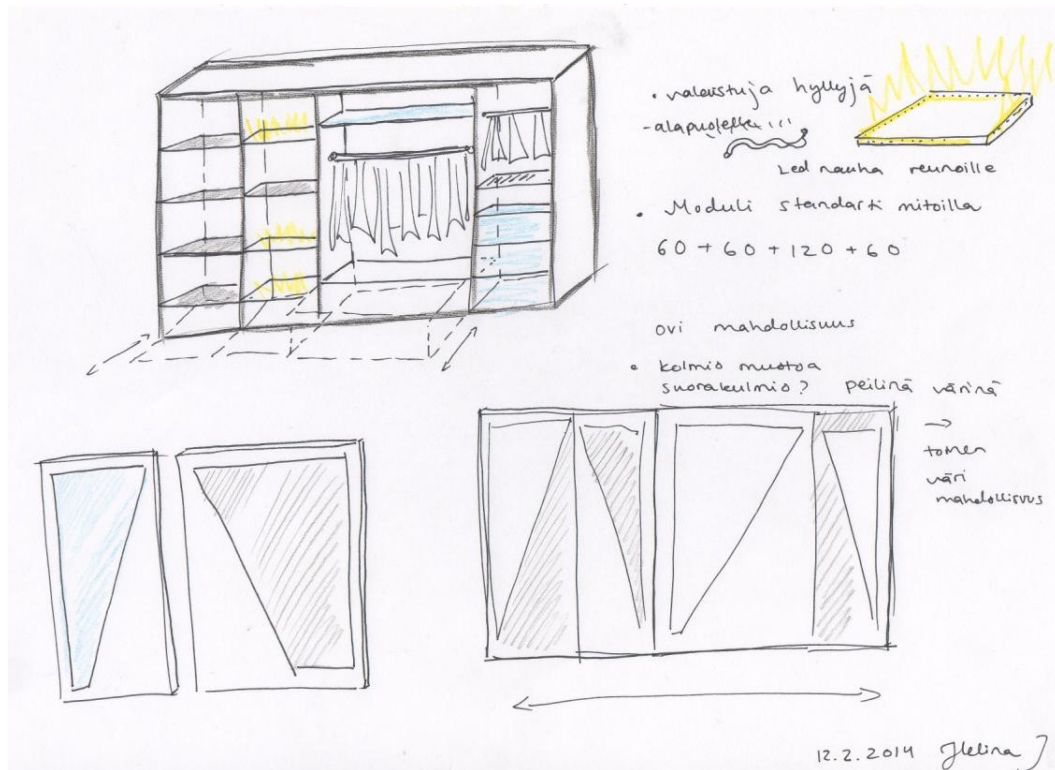 • valaistuja hyllyjä
-alapuolella...
Led nauha reunoille
• Moduli standarti mitoilla
60 + 60 + 120 + 60
ovi mahdollisuus
• kolmio muotoa
suorakulmio? peilinä värinä
→
toinen
väri
mahdollisuus
12.2.2014 JHelina J